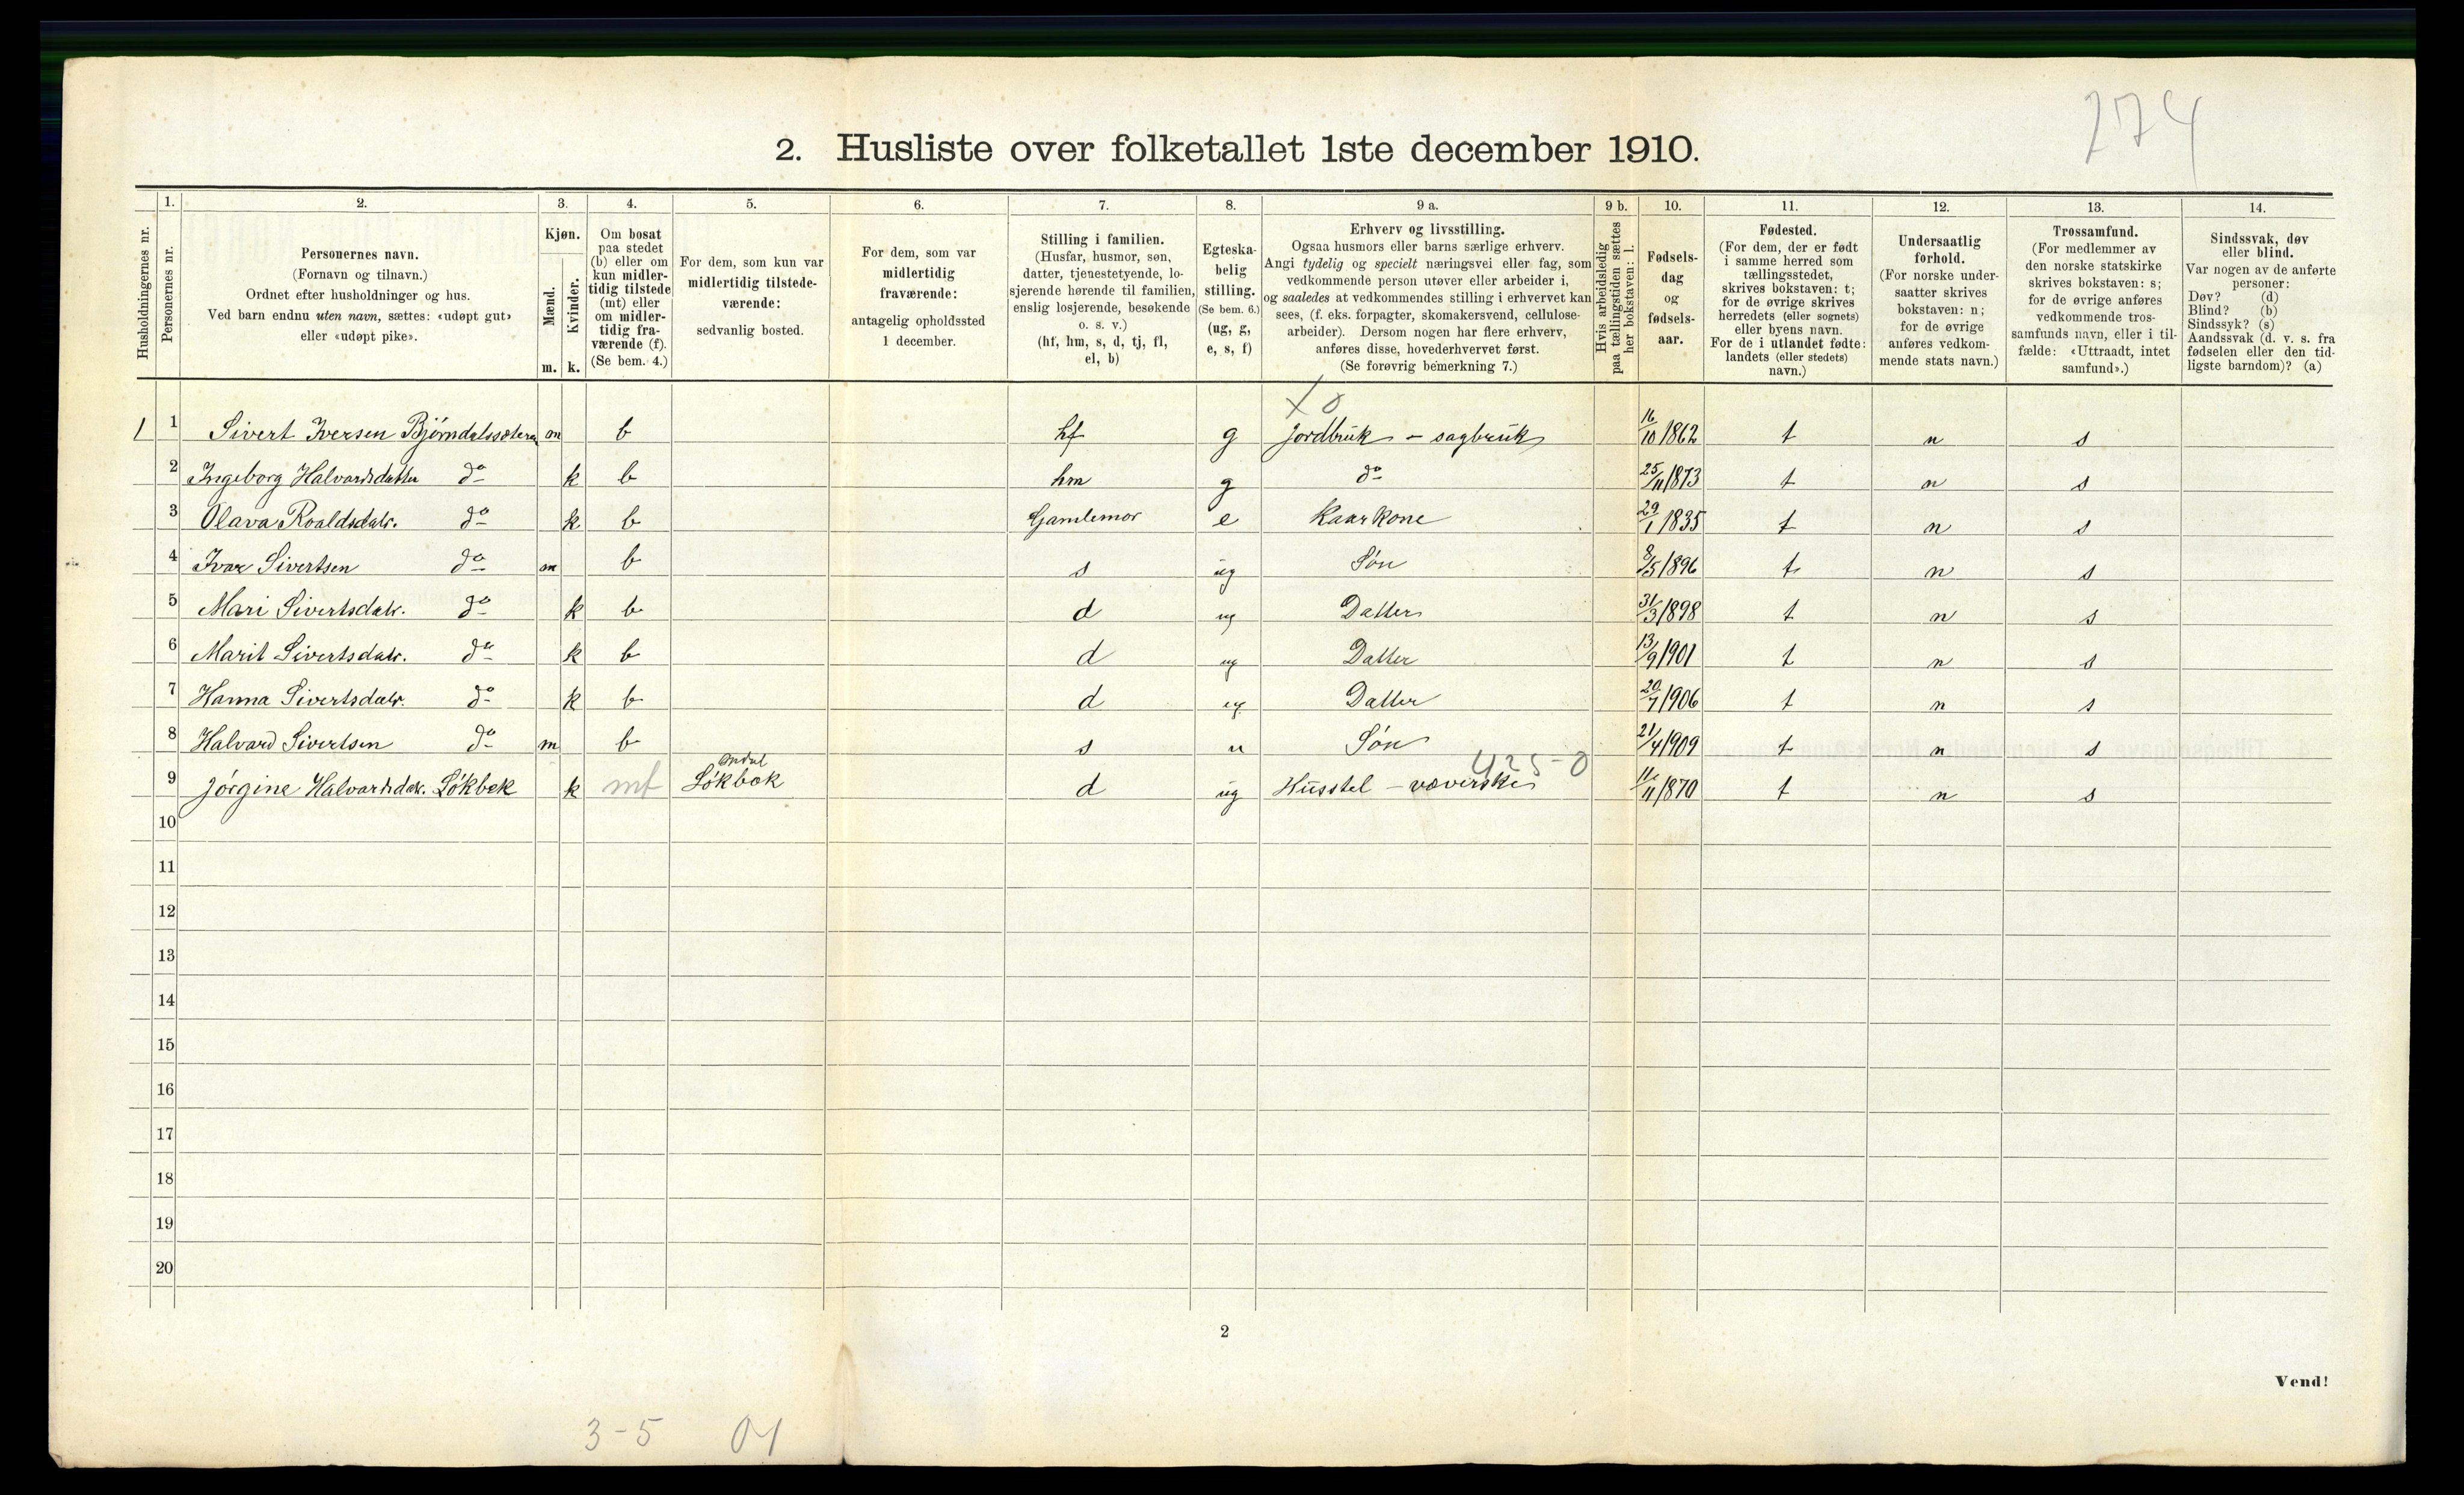 274
2. Husliste over folketallet 1ste december 1910.
Husholdningernes nr.
1.
Personernes nr.
2.
Personernes navn.
(Fornavn og tilnavn.)
Ordnet efter husholdninger og hus.
Ved barn endnu uten navn, sættes: «udøpt gut»
eller «udøpt pike».
3.
Kjøn.
Mænd.
Kvinder.
m. k.
4.
Om bosat
paa stedet
(b) eller om
kun midler-
tidig tilstede
(mt) eller
om midler-
tidig fra-
værende (f).
(Se bem. 4.)
5.
For dem, som kun var
midlertidig tilstede-
værende:
sedvanlig bosted.
6.
For dem, som var
midlertidig
fraværende:
antagelig opholdssted
1 december.
7.
Stilling i familien.
(Husfar, husmor, søn,
datter, tjenestetyende, lo-
sjerende hørende til familien,
enslig losjerende, besøkende
o. s. v.)
(hf, hm, s, d, tj, fl,
el, b)
8.
Egteska-
belig
stilling.
(Se bem. 6.)
(ug, g,
e, s, f)
9 a.
Erhverv og livsstilling.
Ogsaa husmors eller barns særlige erhverv.
Angi tydelig og specielt næringsvei eller fag, som
vedkommende person utøver eller arbeider i,
og saaledes at vedkommendes stilling i erhvervet kan
sees, (f. eks. forpagter, skomakersvend, cellulose-
arbeider). Dersom nogen har flere erhverv,
anføres disse, hovederhvervet først.
(Se forøvrig bemerkning 7.)
9 b.
Hvis arbeidsledig
paa tællingstiden sættes
her bokstaven: l.
10.
Fødsels-
dag
og
fødsels-
aar.
11.
Fødested.
(For dem, der er født
i samme herred som
tællingsstedet,
skrives bokstaven: t;
for de øvrige skrives
herredets (eller sognets)
eller byens navn.
For de i utlandet fødte:
landets (eller stedets)
navn.)
12.
Undersaatlig
forhold.
(For norske under-
saatter skrives
bokstaven: n;
for de øvrige
anføres vedkom-
mende stats navn.)
13.
Trossamfund.
(For medlemmer av
den norske statskirke
skrives bokstaven: s;
for de øvrige anføres
vedkommende tros-
samfunds navn, eller i til-
fælde: «Uttraadt, intet
samfund».)
14.
Sindssvak, døv
eller blind.
Var nogen av de anførte
personer:
Døv? (d)
Blind? (b)
Sindssyk? (s)
Aandssvak (d. v. s. fra
fødselen eller den tid-
ligste barndom)? (a)
X 0
1 1 Sivert Iversen Bjørndalssæteren m b hf g Jordbruk - sagbruk 16/10 1862 t n s
2 Ingeborg Halvardsdatter do k b hm g do 25/11 1873 t n s
3 Olava Roaldsdatr. do k b Gamlemor e Kaarkone 29/1 1835 t n s
4 Ivar Sivertsen do m b s ug Søn 8/5 1896 t n s
5 Mari Sivertsdatr. do k b d ug Datter 31/3 1898 t n s
6 Marit Sivertsdatr. do k b d ug Datter 13/9 1901 t n s
7 Hanna Sivertsdatr. do k b d ug Datter 20/7 1906 t n s
8 Halvard Sivertsen do m b s u Søn 21/4 1909 t n s
425-0
9 Jørgine Halvardsdatr. Løkbek k mt Løkbæk d ug Husstel - væverske 11/11 1870 t n s
10
11
12
13
14
15
16
17
18
19
20
2
Vend!
3-5